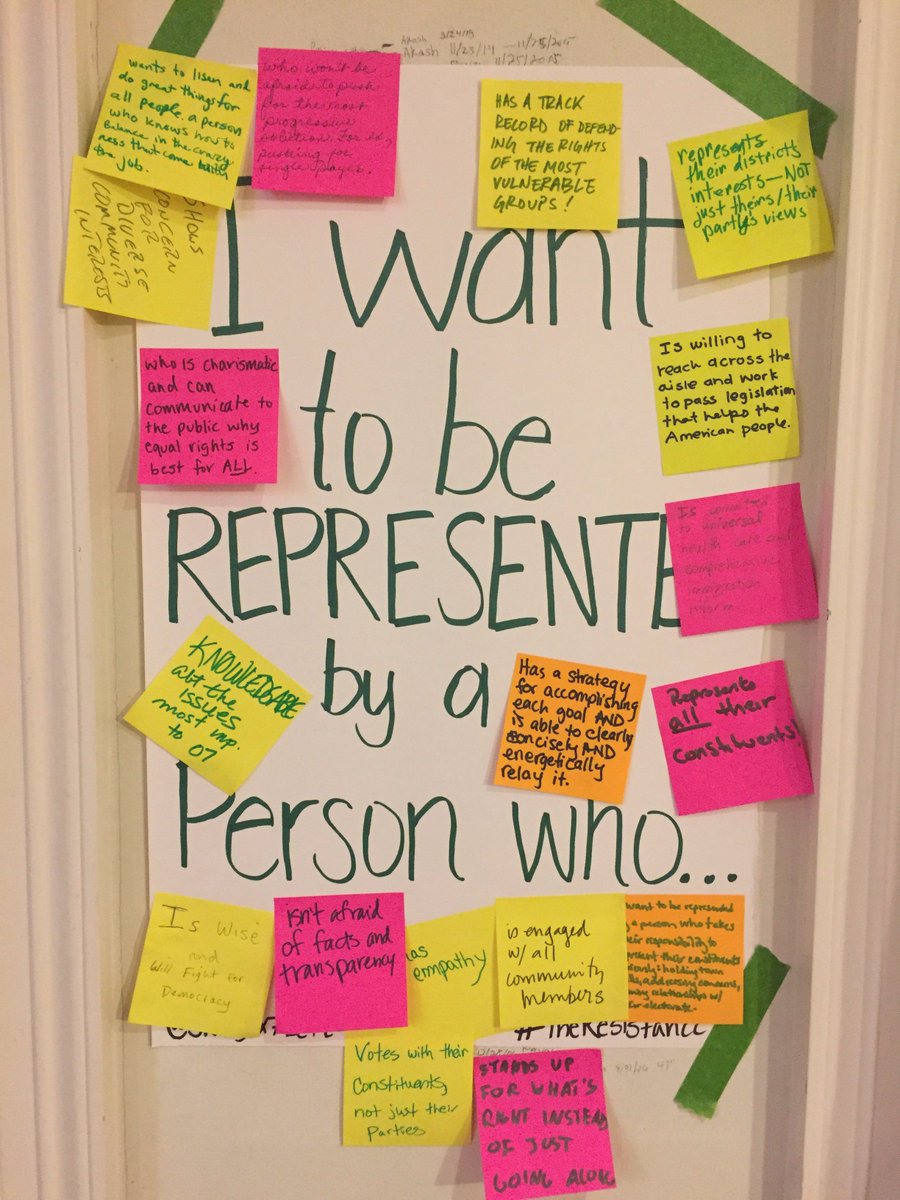 Akash 11/23/14 — 11/25/2015
11/25/2015
wants to lisen and
do great things for
all people. a person
who knows how to
Balance in the crazy
ness that come with
the job.
who won't be
afraid to push
for the most
progressive
solution. For ex,
pushing for
single payer.
HAS A TRACK
RECORD OF DEFEND-
ING THE RIGHTS
OF THE MOST
VULNERABLE
GROUPS!
represents
their districts
interests—NOT
just theirs/their
party's views
SHOWS
CONCERN
FOR
DIVERSE
COMMUNITY
INTERESTS
I want
to be
REPRESENTE
by a
Person who...
who is charismatic
and can
communicate to
the public why
equal rights is
best for ALL.
Is willing to
reach across the
aisle and work
to pass legislation
that helps the
American people.
Is committed
to universal
health care and
comprehensive
immigration
reform
KNOWLEDGABLE
abt the
issues
most imp.
to 07
Has a strategy
for accomplishing
each goal AND
is able to clearly
concisely AND
energetically
relay it.
Represents
all their
constituents!
Is wise
and
Will Fight For
Democracy
isn't afraid
of facts and
transparency
has
empathy
is engaged
w/ all
community
members
want to be represented
a person who takes
their responsibility to
represent their constituents
holding town
addressing concerns,
relationships w/
electorate.
#TheResistance
Votes with their
Constituents,
not just their
Parties
STANDS UP
FOR WHAT'S
RIGHT INSTEAD
OF JUST
GOING ALONG